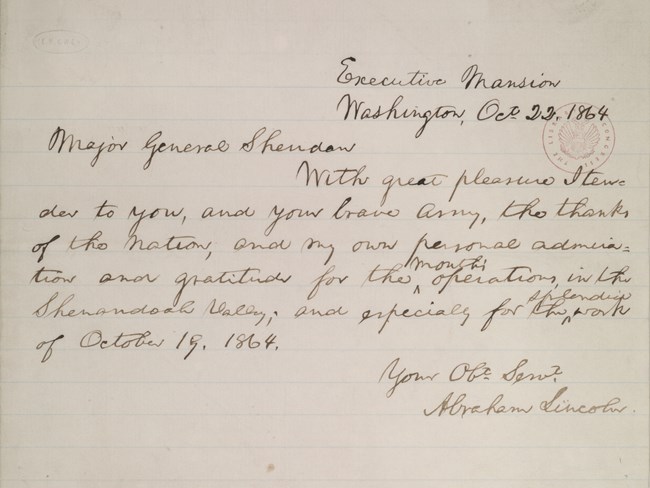 Executive Mansion
Washington, Oct. 22, 1864
Major General Sheridan
With great pleasure I ten=
der to you, and your brave army, the thanks
of the Nation, and my own personal admira=
tion and gratitude for the month's operations in the
Shenandoah Valley; and especially for the splendid work
of October 19, 1864.
Your Obt. Servt.
Abraham Lincoln.